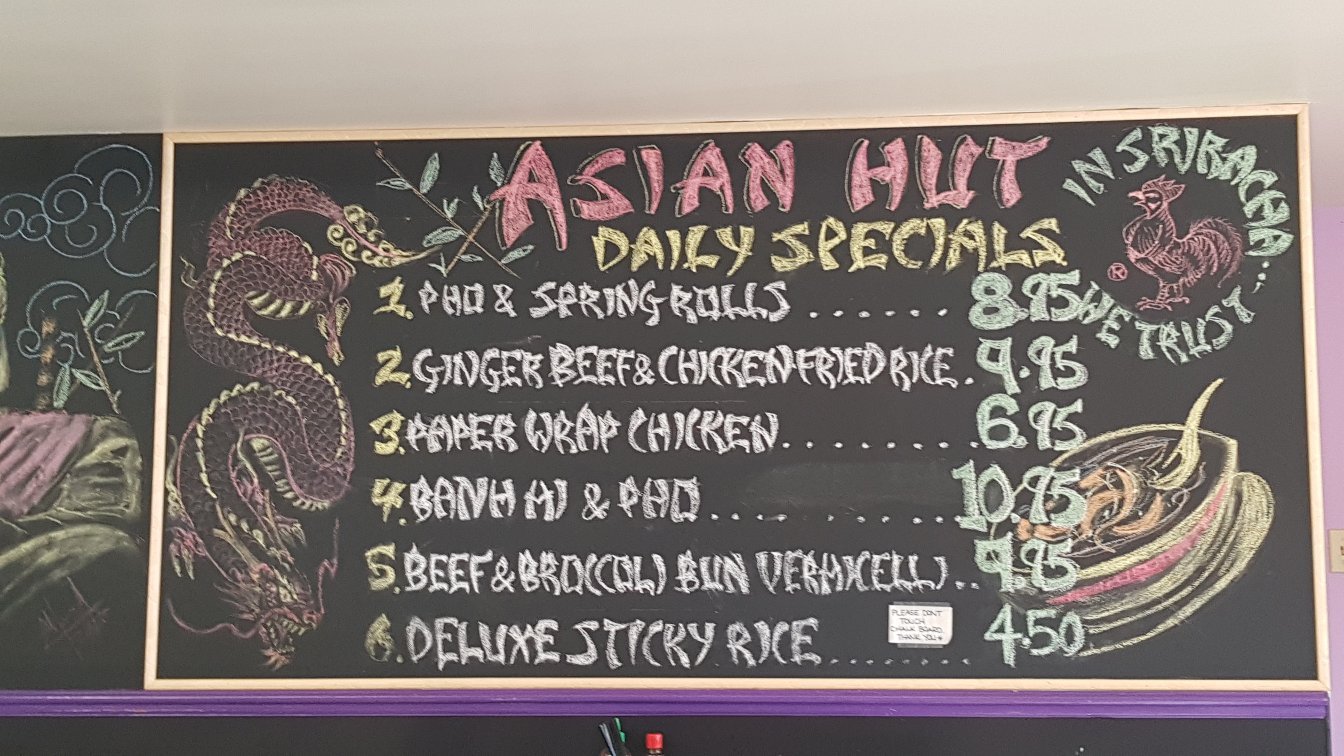 ASIAN HUT
DAILY SPECIALS
IN SRIRACHA...
WE TRUST...
®
1. PHO & SPRING ROLLS ...... 8.95
2. GINGER BEEF & CHICKEN FRIED RICE. 9.95
3. PAPER WRAP CHICKEN......... 6.95
4. BANH HI & PHO.......... 10.95
5. BEEF & BROCCOLI BUN VERMICELLI.. 9.95
6. DELUXE STICKY RICE........ 4.50
PLEASE DONT
TOUCH
CHALK BOARD.
THANK YOU